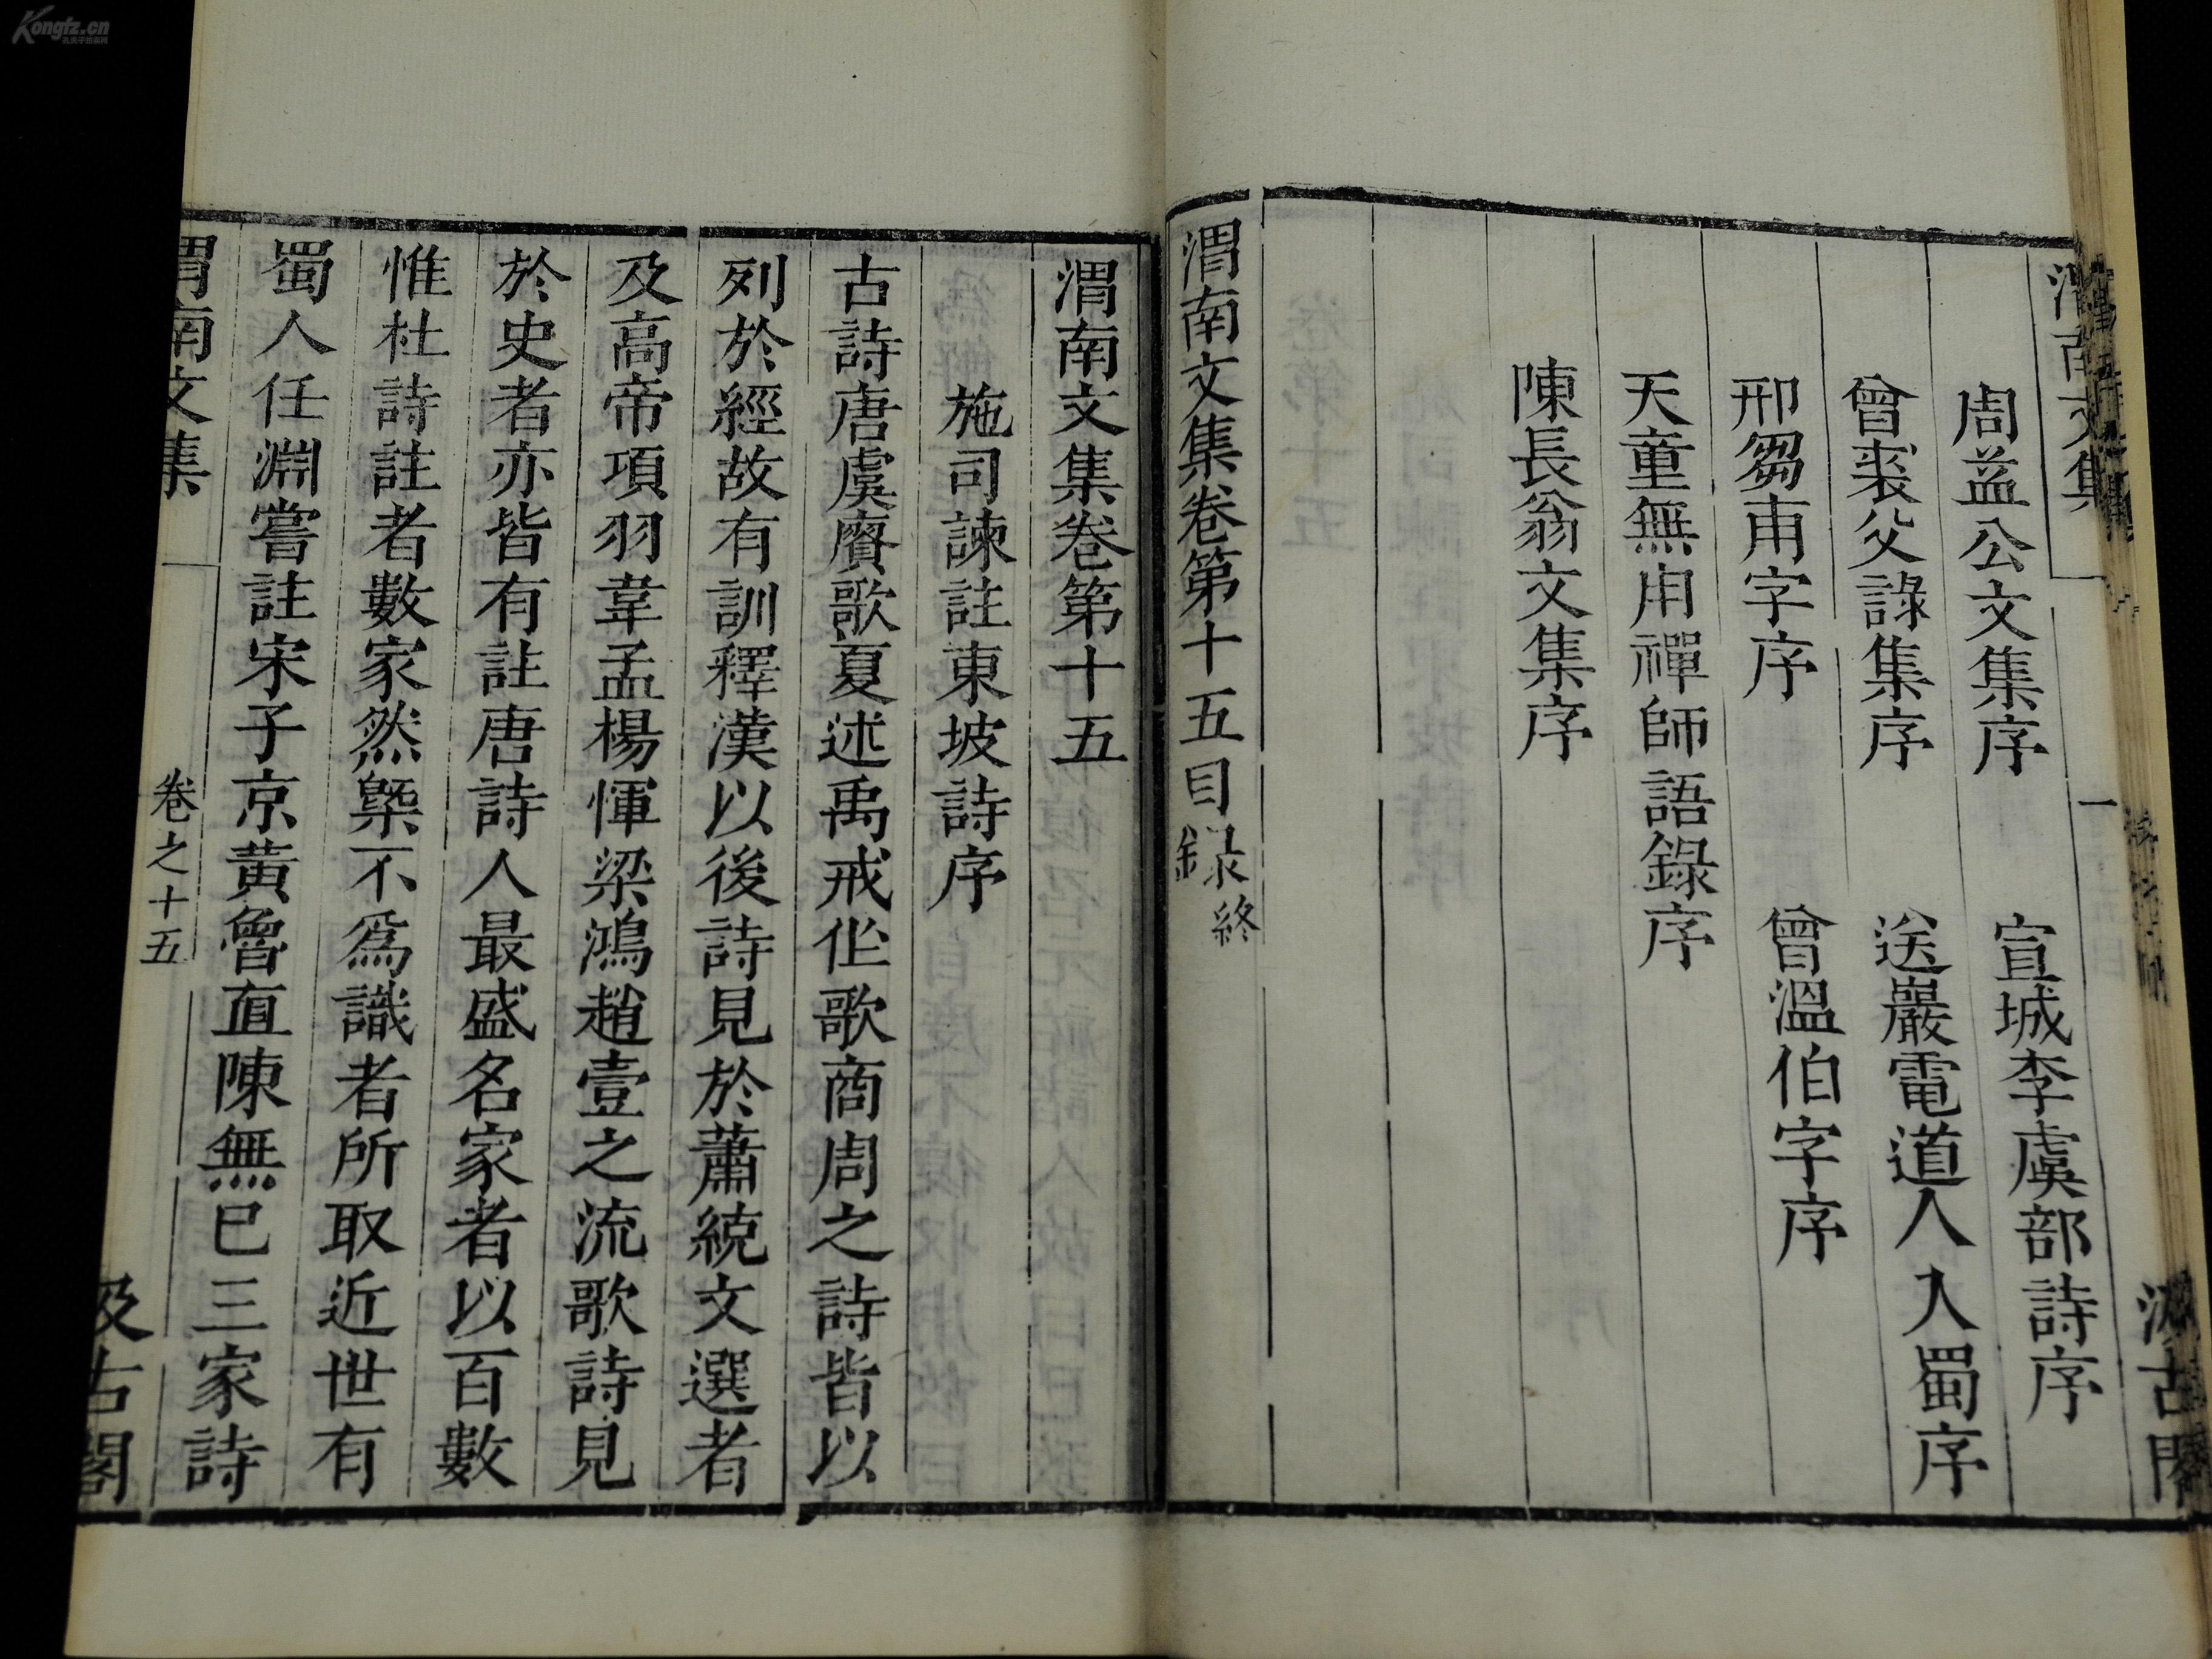 渭南文集
一
汲古閣
周益公文集序
宣城李虞部詩序
曾裘父詩集序
送巖電道人入蜀序
邢芻甫字序
曾溫伯字序
天童無用禪師語錄序
陳長翁文集序
渭南文集卷第十五目錄終
渭南文集卷第十五
施司諫註東坡詩序
古詩唐虞賡歌夏述禹戒作歌商周之詩皆以
列於經故有訓釋漢以後詩見於蕭統文選者
及高帝項羽韋孟楊惲梁鴻趙壹之流歌詩見
於史者亦皆有註唐詩人最盛名家者以百數
惟杜詩註者數家然槩不爲識者所取近世有
蜀人任淵嘗註宋子京黃魯直陳無已三家詩
渭南文集
卷之十五
汲古閣
Kongfz.cn